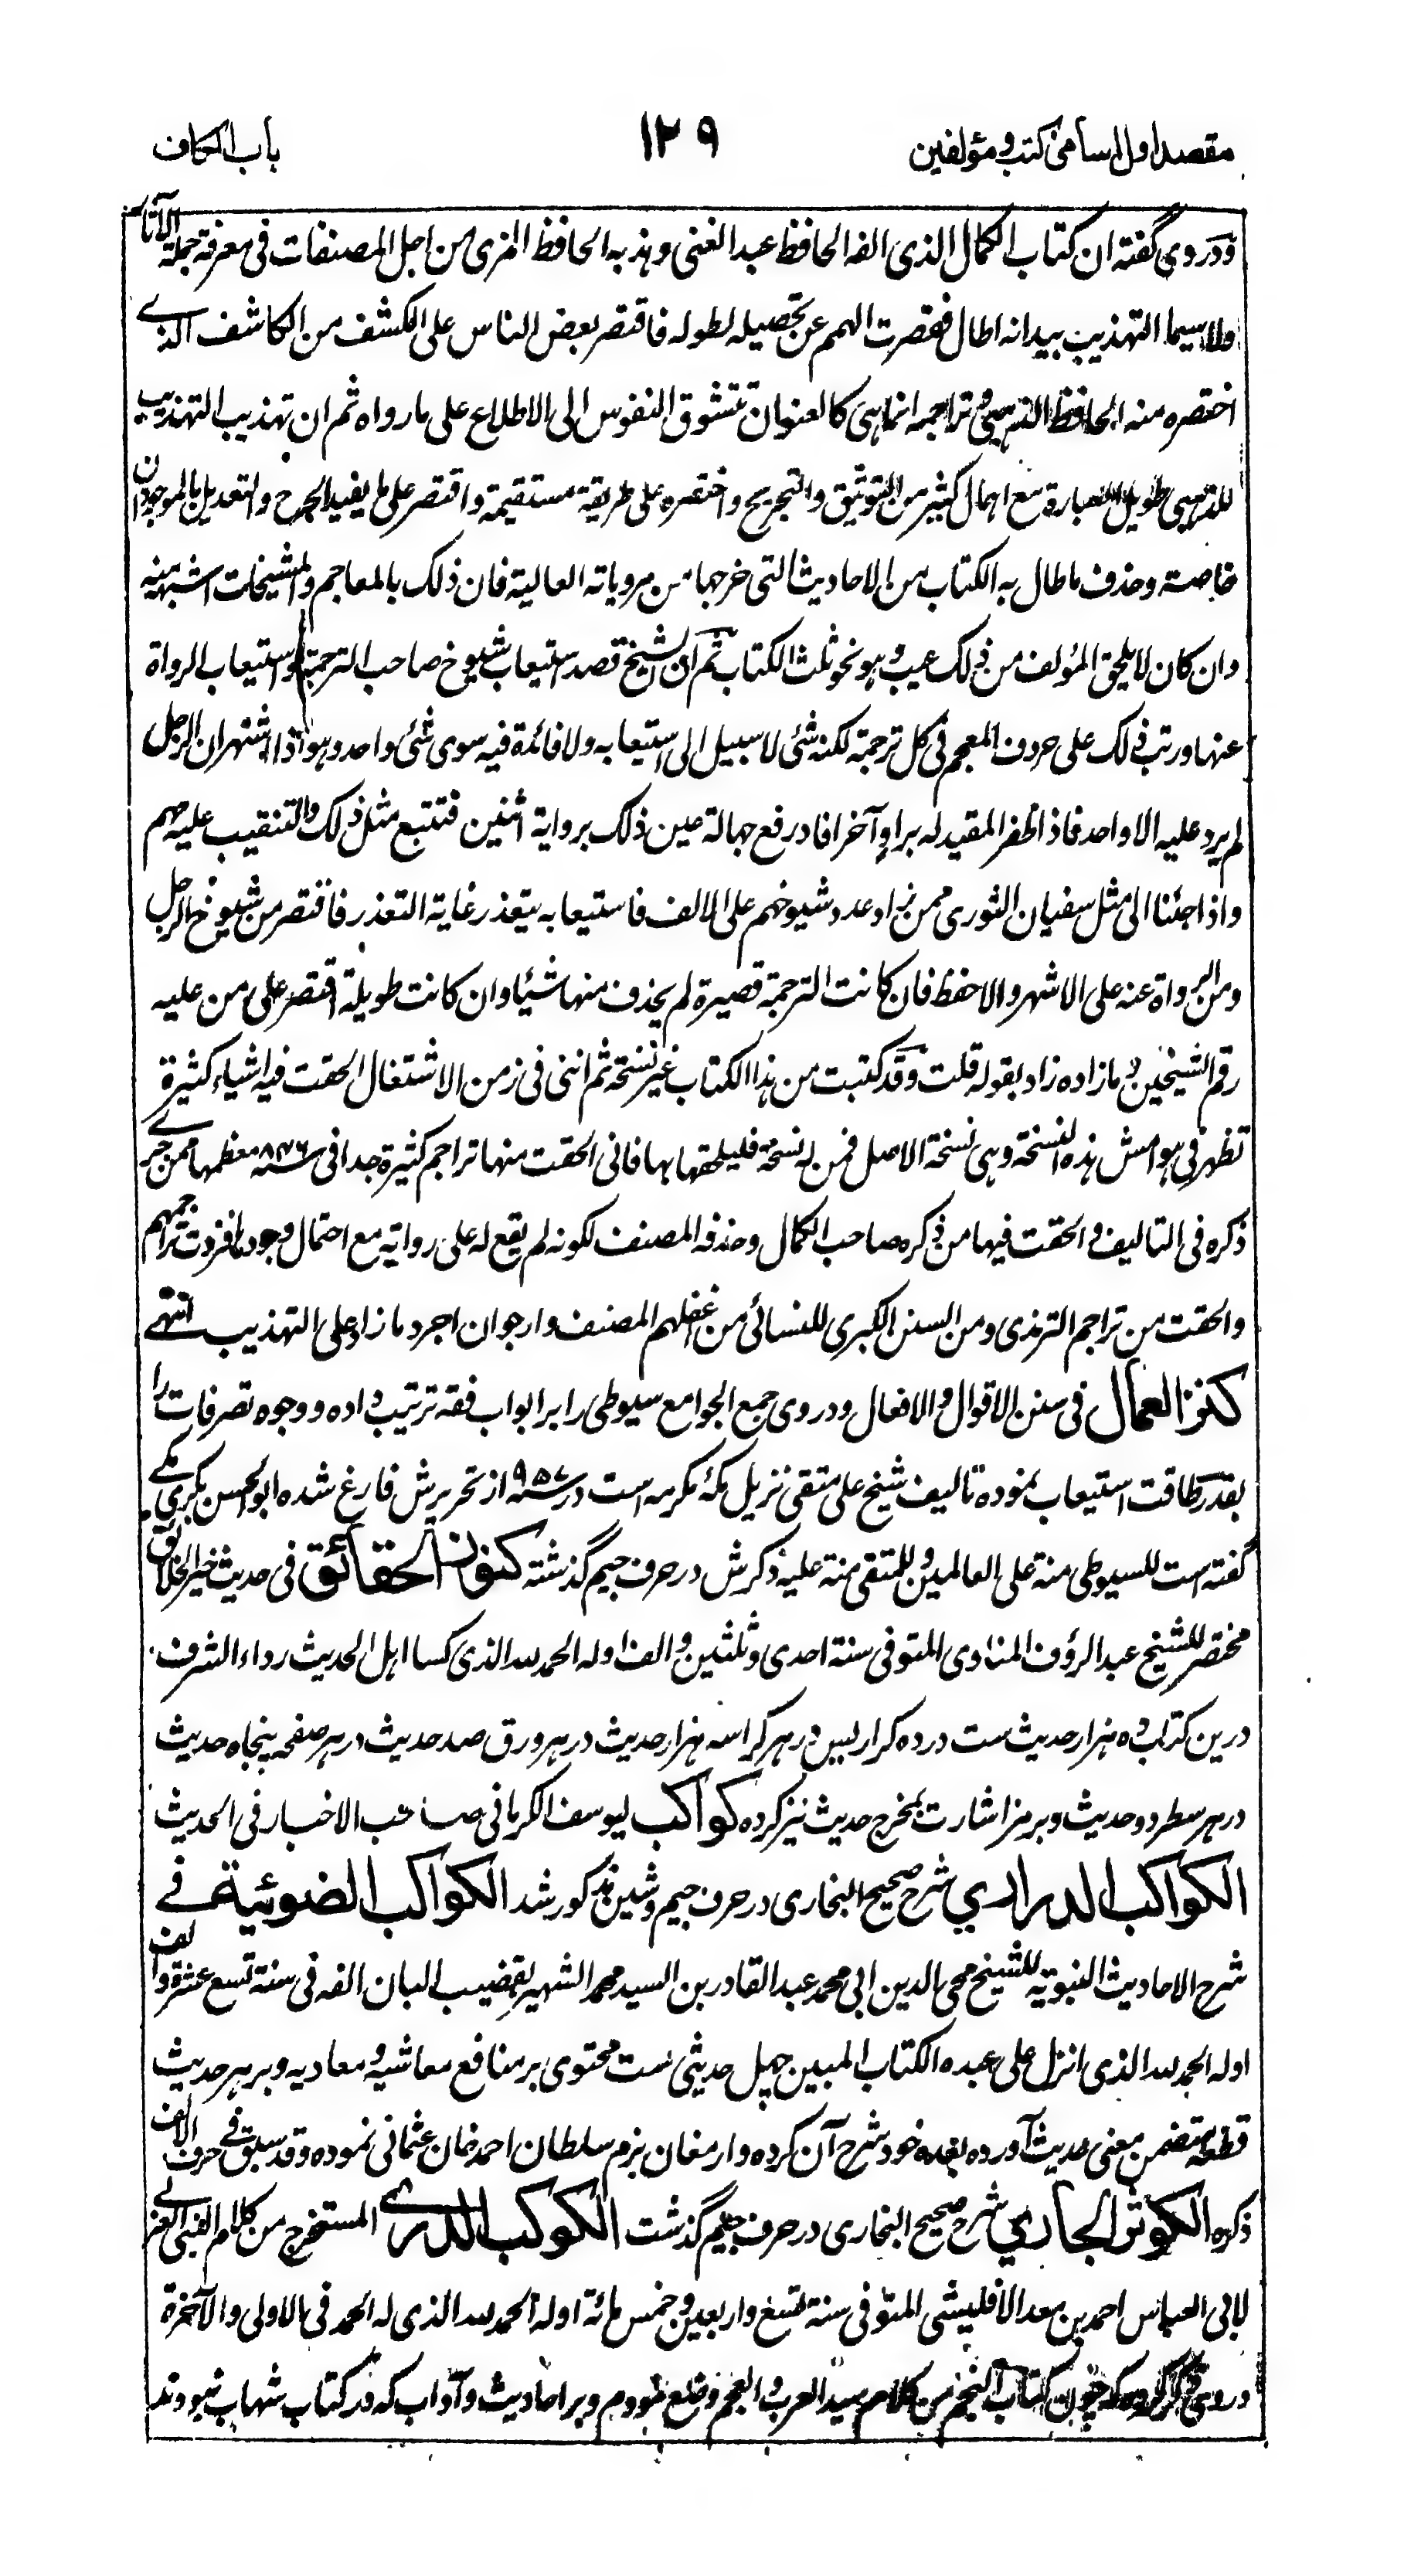 مقصد اول اسامی کتب و مؤلفین
۱۲۹
باب الکاف
و در وی گفته ان کتاب الکمال الذی الفه الحافظ عبد الغنی و هذبه الحافظ المزی من اجل المصنفات فی معرفة حملة الآثار
ولا سیما التهذیب بیدانه اطال فقصرت الهمم عن تحصیله لطوله فاقتصر بعض الناس علی الکشف من الکاشف الذی
اختصره منه الحافظ الذهبی و تراجمه انما هی کالعنوان تتشوق النفوس الی الاطلاع علی ما رواه ثم ان تهذیب التهذیب
للذهبی طویل العبارة مع اهمال کثیر من التوثیق والتجریح واختصره علی طریقة مستقیمة واقتصر علی ما یفید الجرح والتعدیل
خاصة وحذف ما طال به الکتاب من الاحادیث التی خرجها من مرویاته العالیة فان ذلک بالمعاجم والمشیخات اشبه منه
وان کان لا یلحق المؤلف من ذلک عیب وهو نحو ثلث الکتاب ثم ان الشیخ قصد استیعاب شیوخ صاحب الترجمة واستیعاب الرواة
عنها ورتب ذلک علی حروف المعجم فی کل ترجمة لکنه شئی لا سبیل الی استیعابه ولا فائدة فیه سوی شئی واحد وهو اذا اشتهر ان الرجل
لم یرد علیه الا واحد فاذا ظفر المقید له براوٍ آخر افاد رفع جهالة عین ذلک بروایة اثنین فتتبع مثل ذلک والتنقیب علیه مهم
واذا جئنا الی مثل سفیان الثوری ممن زاد عدد شیوخهم علی الالف فاستیعابه یتعذر غایة التعذر فاقتصر من شیوخ الرجل
ومن الرواة عنه علی الاشهر والاحفظ فان کانت الترجمة قصیرة لم یحذف منها شیئا وان کانت طویلة اقتصر علی من علیه
رقم الشیخین و ما زاده زاد بقوله قلت وقد کتبت من هذا الکتاب غیر نسخة ثم اننی فی زمن الاشتغال الحقت فیه اشیاء کثیرة
تظهر فی هوامش هذه النسخة وهی نسخة الاصل فمن له نسخة فلیلحقها بها فانی الحقت منها تراجم کثیرة جدا فی سنه ۸۴۶ معظمها ممن جری
ذکره فی التالیف والحقت فیها من ذکره صاحب الکمال وحذفه المصنف لکونه لم یقع له علی روایته مع احتمال وجودها فزدت تراجمهم
والحقت من تراجم الترمذی ومن السنن الکبری للنسائی من اغفلهم المصنف وارجو ان اجرد ما زاد علی التهذیب انتهی
کنز العمال فی سنن الاقوال والافعال و در وی جمع الجوامع سیوطی را بر ابواب فقه ترتیب داده و وجوه تصرفات را
بقدر طاقت استیعاب نموده تالیف شیخ علی متقی نزیل مکۀ مکرمه است در سنه ۹۵۷ از تحریرش فارغ شده ابو الحسن بکری مکی
گفته است للسیوطی منة علی العالمین وللمتقی منة علیه ذکرش در حرف جیم گذشته کنوز الحقائق فی حدیث خیر الخلائق
مختصر للشیخ عبد الرؤف المناوی المتوفی سنة احدی وثلثین والف اوله الحمد لله الذی کسا اهل الحدیث رداء الشرف
درین کتاب ده هزار حدیث ست در ده کراریس در هر کراسه هزار حدیث در هر ورق صد حدیث در هر صفحه پنجاه حدیث
در هر سطر دو حدیث و برمز اشارت بمخرج حدیث نیز کرده کواکب لیوسف الکرمانی صاحب الاخبار فی الحدیث
الکواکب الدراري شرح صحیح البخاری در حرف جیم و شین مذکور شد الکواکب الضوئیة فی
شرح الاحادیث النبویة للشیخ محی الدین ابی محمد عبد القادر بن السید محمد الشهیر بقضیب البان الفه فی سنة تسع عشرة والف
اوله الحمد لله الذی انزل علی عبده الکتاب المبین چهل حدیثی ست محتوی بر منافع معاشیه و معادیه و بر هر حدیث
قطعه متضمن معنی حدیث آورده بعده خود شرح آن کرده و ارمغان بزم سلطان احمد خان عثمانی نموده وقد سبق فی حرف الالف
ذکره الکوثر الجاري شرح صحیح البخاری در حرف جیم گذشت الکوکب الدری المستخرج من کلام النبی العزی
لابی العباس احمد بن معد الاقلیشی المتوفی سنة تسع واربعین وخمس مائة اوله الحمد لله الذی له الحمد فی الاولی والآخرة
در وی ذکر کرده که چون کتاب النجم من کلام سید العرب والعجم وضع نمودم و بر احادیث و آداب که در کتاب شهاب نبودند